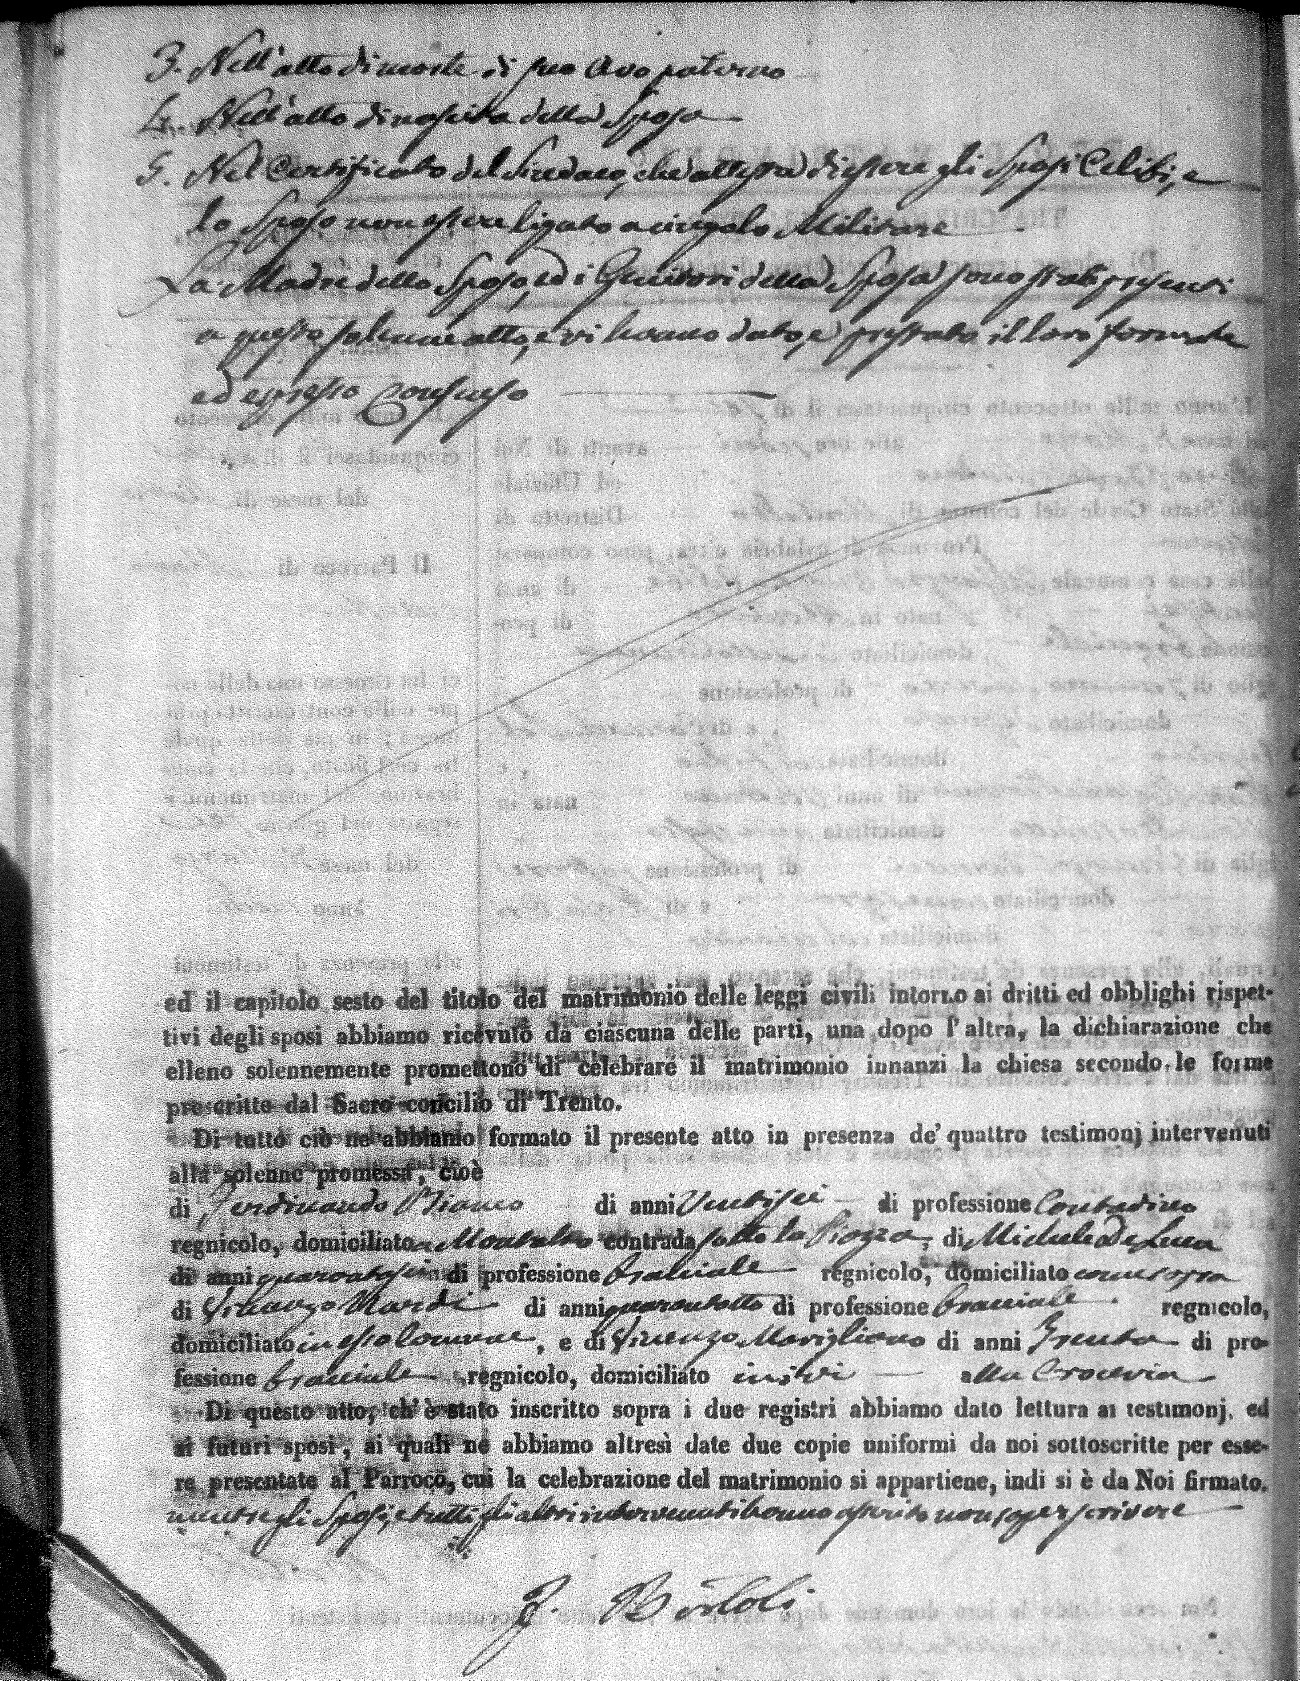 3. Nell'atto di morte di suo Avo paterno
4. Nell'atto di nascita della Sposa
5. Nel Certificato del Sindaco, che attessa di essere gli Sposi Celibi, e
lo Sposo non essere ligato a cingolo Militare
La Madre dello Sposo, ed i Genitori della Sposa sono stati presenti
a questo solenne atto, e vi hanno dato, e prestato il loro formale
ed espresso Consenso
ed il capitolo sesto del titolo del matrimonio delle leggi civili intorno ai dritti ed obblighi rispet-
tivi degli sposi abbiamo ricevuto da ciascuna delle parti, una dopo l'altra, la dichiarazione che
elleno solennemente promettono di celebrare il matrimonio innanzi la chiesa secondo le forme
prescritte dal Sacro concilio di Trento.
Di tutto ciò ne abbiamo formato il presente atto in presenza de' quattro testimonj intervenuti
alla solenne promessa, cioè
di Ferdinando Bianco di anni Ventisei di professione Contadino
regnicolo, domiciliato a Montalto contrada sotto la Piazza, di Michele De Luca
di anni quarantasei di professione bracciale regnicolo, domiciliato come sopra
di Vincenzo Nardi di anni quarantotto di professione bracciale regnicolo,
domiciliato in esso Comune, e di Vincenzo Marigliano di anni Trenta di pro-
fessione bracciale regnicolo, domiciliato ivi alla Crocevia
Di questo atto, ch'è stato inscritto sopra i due registri abbiamo dato lettura ai testimonj, ed
ai futuri sposi, ai quali ne abbiamo altresì date due copie uniformi da noi sottoscritte per esse-
re presentate al Parroco, cui la celebrazione del matrimonio si appartiene, indi si è da Noi firmato.
mentre gli Sposi, e tutti gli altri intervenuti hanno asserito non saper scrivere